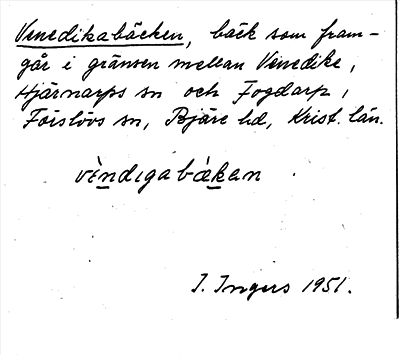 Venedikabäcken, bäck som fram-
går i gränsen mellan Venedike,
Hjärnarps sn och Fogdarp i
Förslövs sn, Bjäre hd, Krist. län.
vèndigabàkan
I. Ingers 1951.